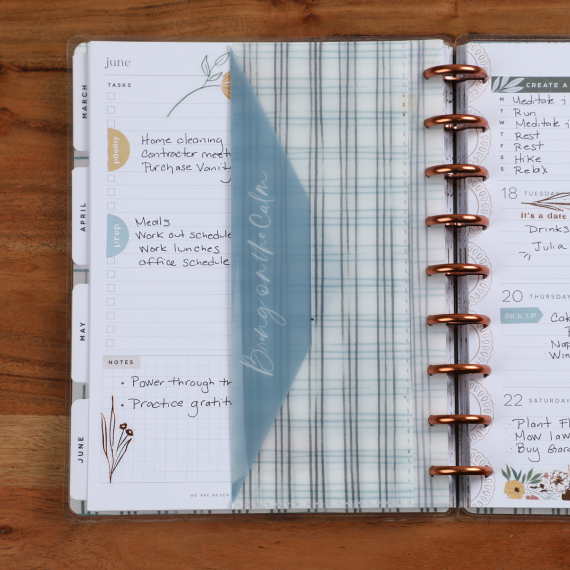 june
TASKS
MARCH
APRIL
MAY
JUNE
priority
Home cleaning
Contractor meet
Purchase Vanity
prep
Meals
Work out schedule
Work lunches
office schedule
NOTES
• Power through
• Practice
WE ARE
Bring on the Calm
CREATE A
M Meditate
T Run
W Meditate
T Rest
F Rest
S Hike
S Relax
18 TUESDAY
it's a date
Drinks
Julia
20 THURSDAY
PICK UP
22 SATURDAY
• Plant
Mow
Buy